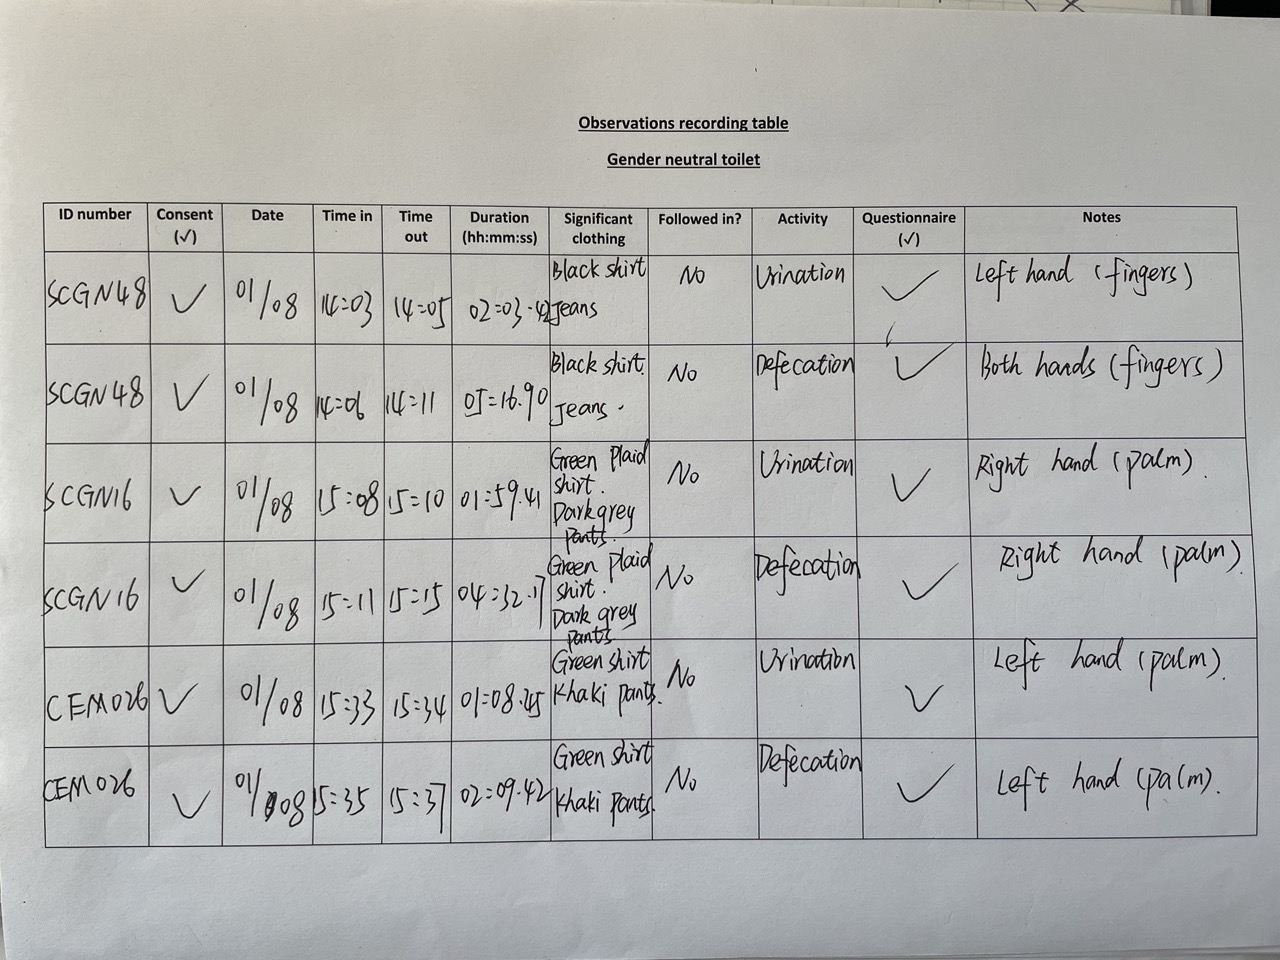 Observations recording table
Gender neutral toilet
ID number Consent (✓) Date Time in Time out Duration (hh:mm:ss) Significant clothing Followed in? Activity Questionnaire (✓) Notes
SCGN48 ✓ 01/08 14:03 14:05 02:03.42 Black shirt Jeans No Urination ✓ Left hand (fingers)
SCGN48 ✓ 01/08 14:06 14:11 05:16.90 Black shirt. Jeans. No Defecation ✓ Both hands (fingers)
SCGN16 ✓ 01/08 15:08 15:10 01:59.41 Green Plaid shirt. Dark grey pants. No Urination ✓ Right hand (palm).
SCGN16 ✓ 01/08 15:11 15:15 04:32.17 Green Plaid shirt. Dark grey pants No Defecation ✓ Right hand (palm).
CEM026 ✓ 01/08 15:33 15:34 01:08.45 Green shirt Khaki pants. No Urination ✓ Left hand (palm).
CEM026 ✓ 01/08 15:35 15:37 02:09.42 Green shirt Khaki pants. No Defecation ✓ Left hand (palm).